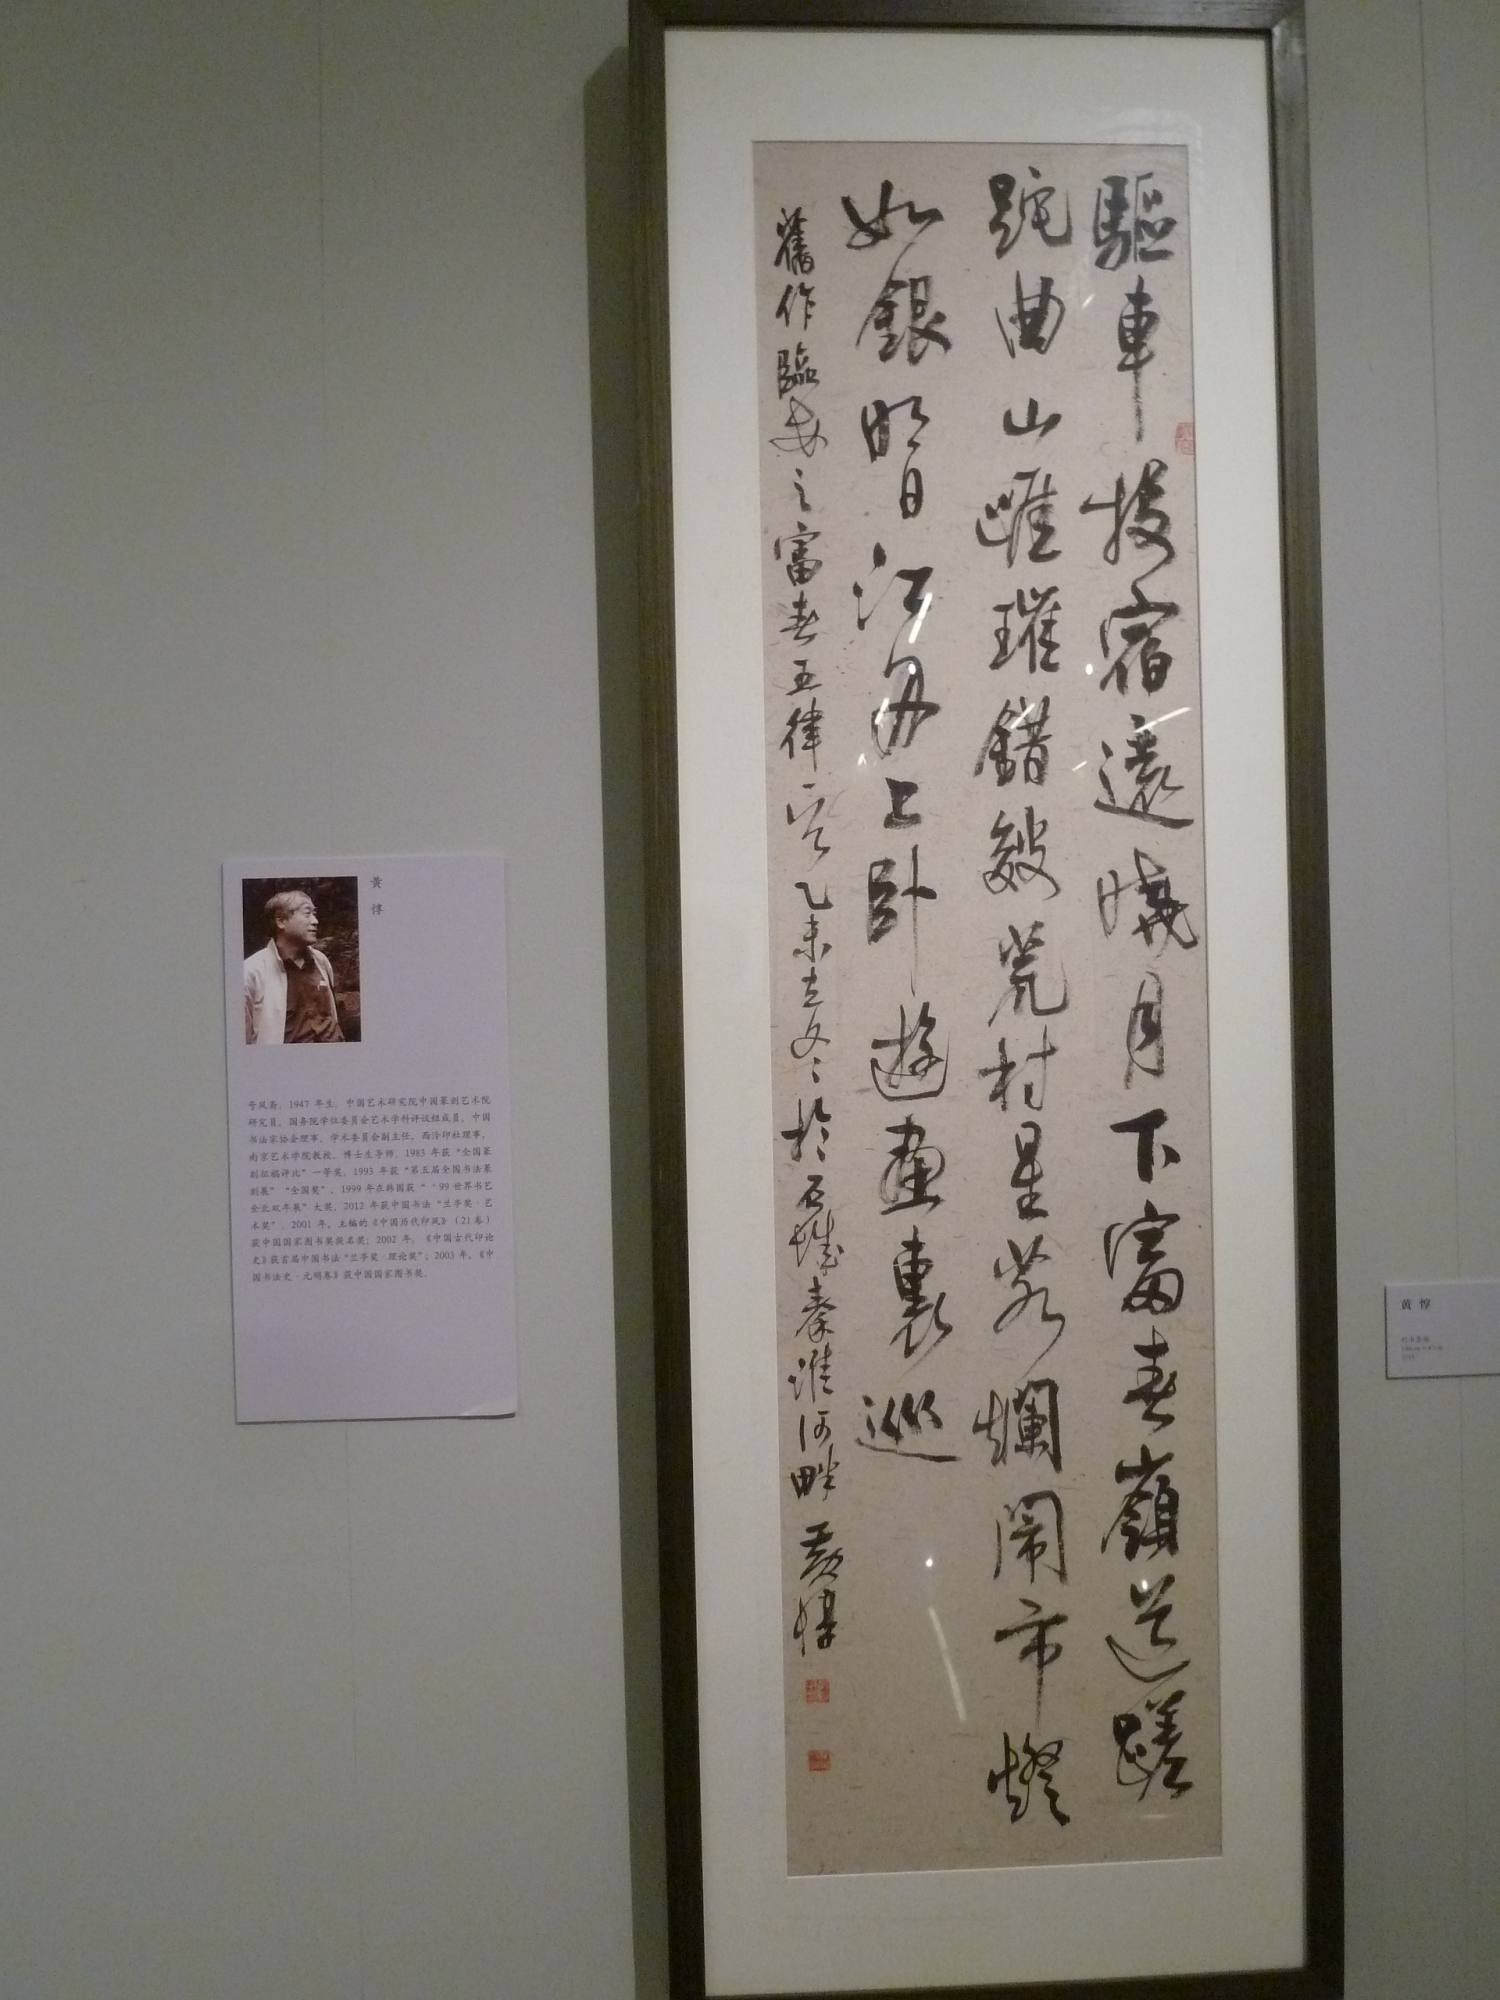 驅車投宿遠曉月下富春嶺道蹉
跎曲山
璀錯
荒村星若爛鬧市燈
如銀明日江舟上卧遊畫裏巡
舊作臨安之富春五律一首乙未立冬於石城秦淮河畔黄惇
黄惇
号风斋，1947 年生，中国艺术研究院中国篆刻艺术院
研究员，国务院学位委员会艺术学科评议组成员，中国
书法家协会理事，学术委员会副主任，西泠印社理事，
南京艺术学院教授，博士生导师，1983 年获“全国篆
刻征稿评比”一等奖，1993 年获“第五届全国书法篆
刻展”“全国奖”，1999 年在韩国获“‘99 世界书艺
全北双年展”大奖，2012 年获中国书法“兰亭奖·艺
术奖”，2001 年，主编的《中国历代印风》（21卷）
获中国国家图书奖提名奖；2002 年，《中国古代印论
史》获首届中国书法“兰亭奖·理论奖”；2003 年，《中
国书法史·元明卷》获中国国家图书奖。
黄惇